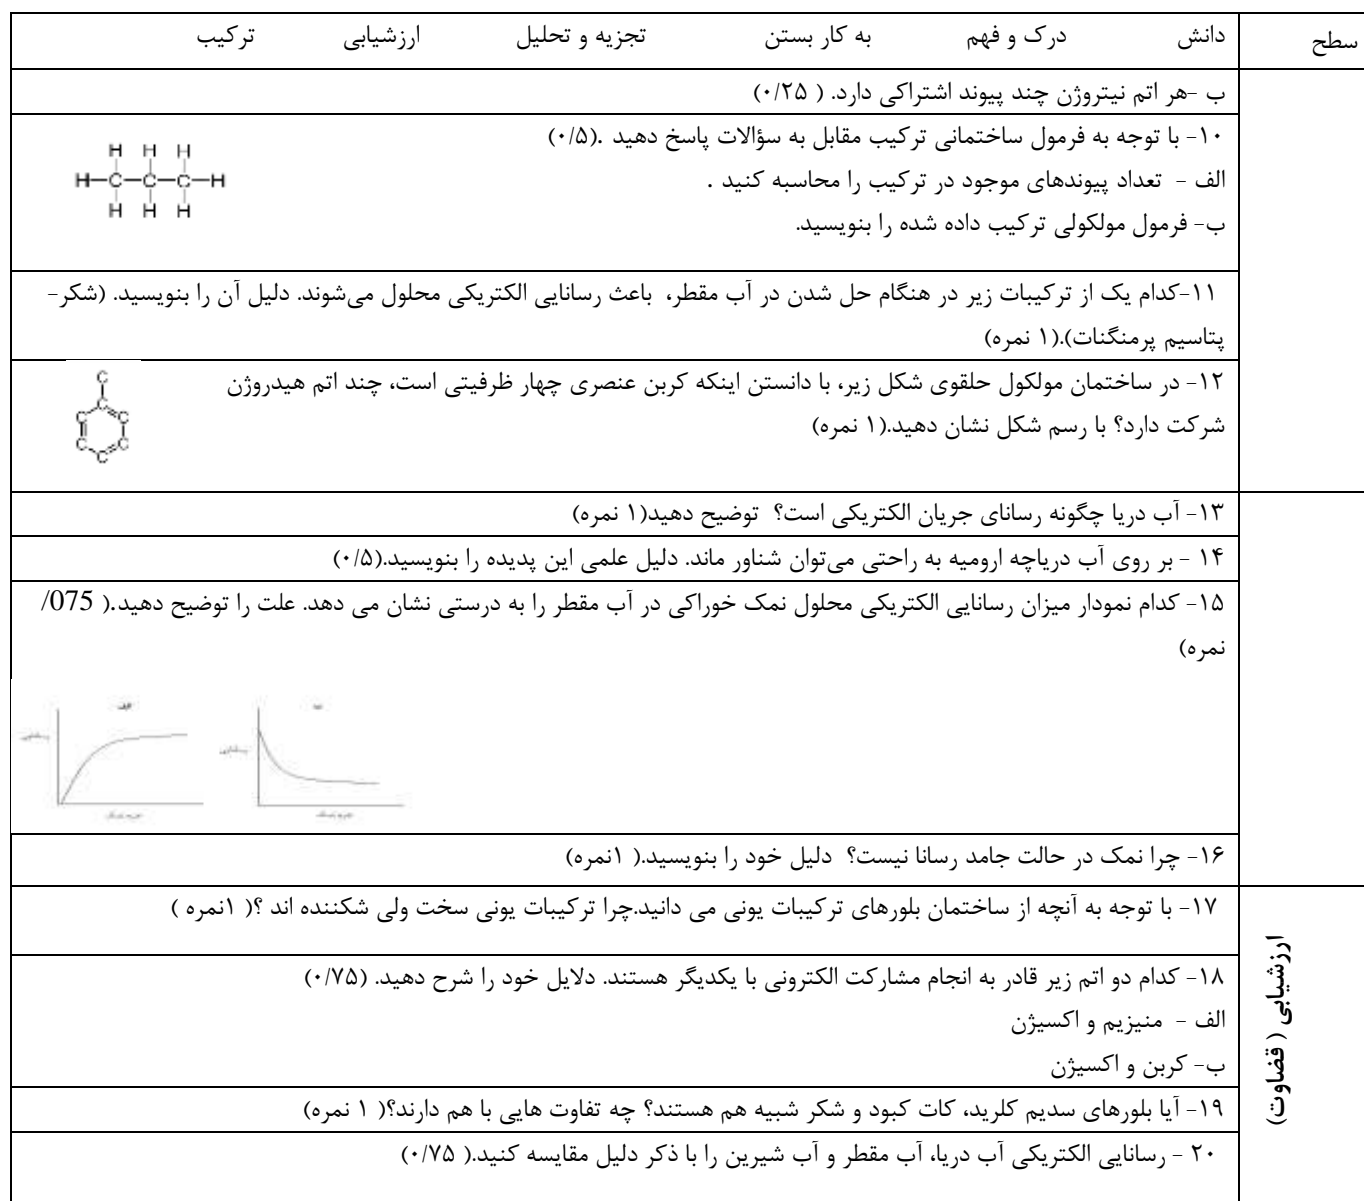 سطح دانش درک و فهم به کار بستن تجزیه و تحلیل ارزشیابی ترکیب
ب -هر اتم نیتروژن چند پیوند اشتراکی دارد. ( ۰/۲۵)
۱۰- با توجه به فرمول ساختمانی ترکیب مقابل به سؤالات پاسخ دهید .(۰/۵)
الف - تعداد پیوندهای موجود در ترکیب را محاسبه کنید .
ب- فرمول مولکولی ترکیب داده شده را بنویسید.
H H H
H-C-C-C-H
H H H
۱۱-کدام یک از ترکیبات زیر در هنگام حل شدن در آب مقطر، باعث رسانایی الکتریکی محلول می‌شوند. دلیل آن را بنویسید. (شکر-
پتاسیم پرمنگنات).(۱ نمره)
۱۲- در ساختمان مولکول حلقوی شکل زیر، با دانستن اینکه کربن عنصری چهار ظرفیتی است، چند اتم هیدروژن
شرکت دارد؟ با رسم شکل نشان دهید.(۱ نمره)
C
C
C C
C C
C
۱۳- آب دریا چگونه رسانای جریان الکتریکی است؟ توضیح دهید(۱ نمره)
۱۴ - بر روی آب دریاچه ارومیه به راحتی می‌توان شناور ماند. دلیل علمی این پدیده را بنویسید.(۰/۵)
۱۵- کدام نمودار میزان رسانایی الکتریکی محلول نمک خوراکی در آب مقطر را به درستی نشان می دهد. علت را توضیح دهید.( 075/
نمره)
۱۶- چرا نمک در حالت جامد رسانا نیست؟ دلیل خود را بنویسید.( ۱نمره)
۱۷- با توجه به آنچه از ساختمان بلورهای ترکیبات یونی می دانید.چرا ترکیبات یونی سخت ولی شکننده اند ؟( ۱نمره )
ارزشیابی ( قضاوت)
۱۸- کدام دو اتم زیر قادر به انجام مشارکت الکترونی با یکدیگر هستند. دلایل خود را شرح دهید. (۰/۷۵)
الف - منیزیم و اکسیژن
ب- کربن و اکسیژن
۱۹- آیا بلورهای سدیم کلرید، کات کبود و شکر شبیه هم هستند؟ چه تفاوت هایی با هم دارند؟( ۱ نمره)
۲۰ - رسانایی الکتریکی آب دریا، آب مقطر و آب شیرین را با ذکر دلیل مقایسه کنید.( ۰/۷۵)